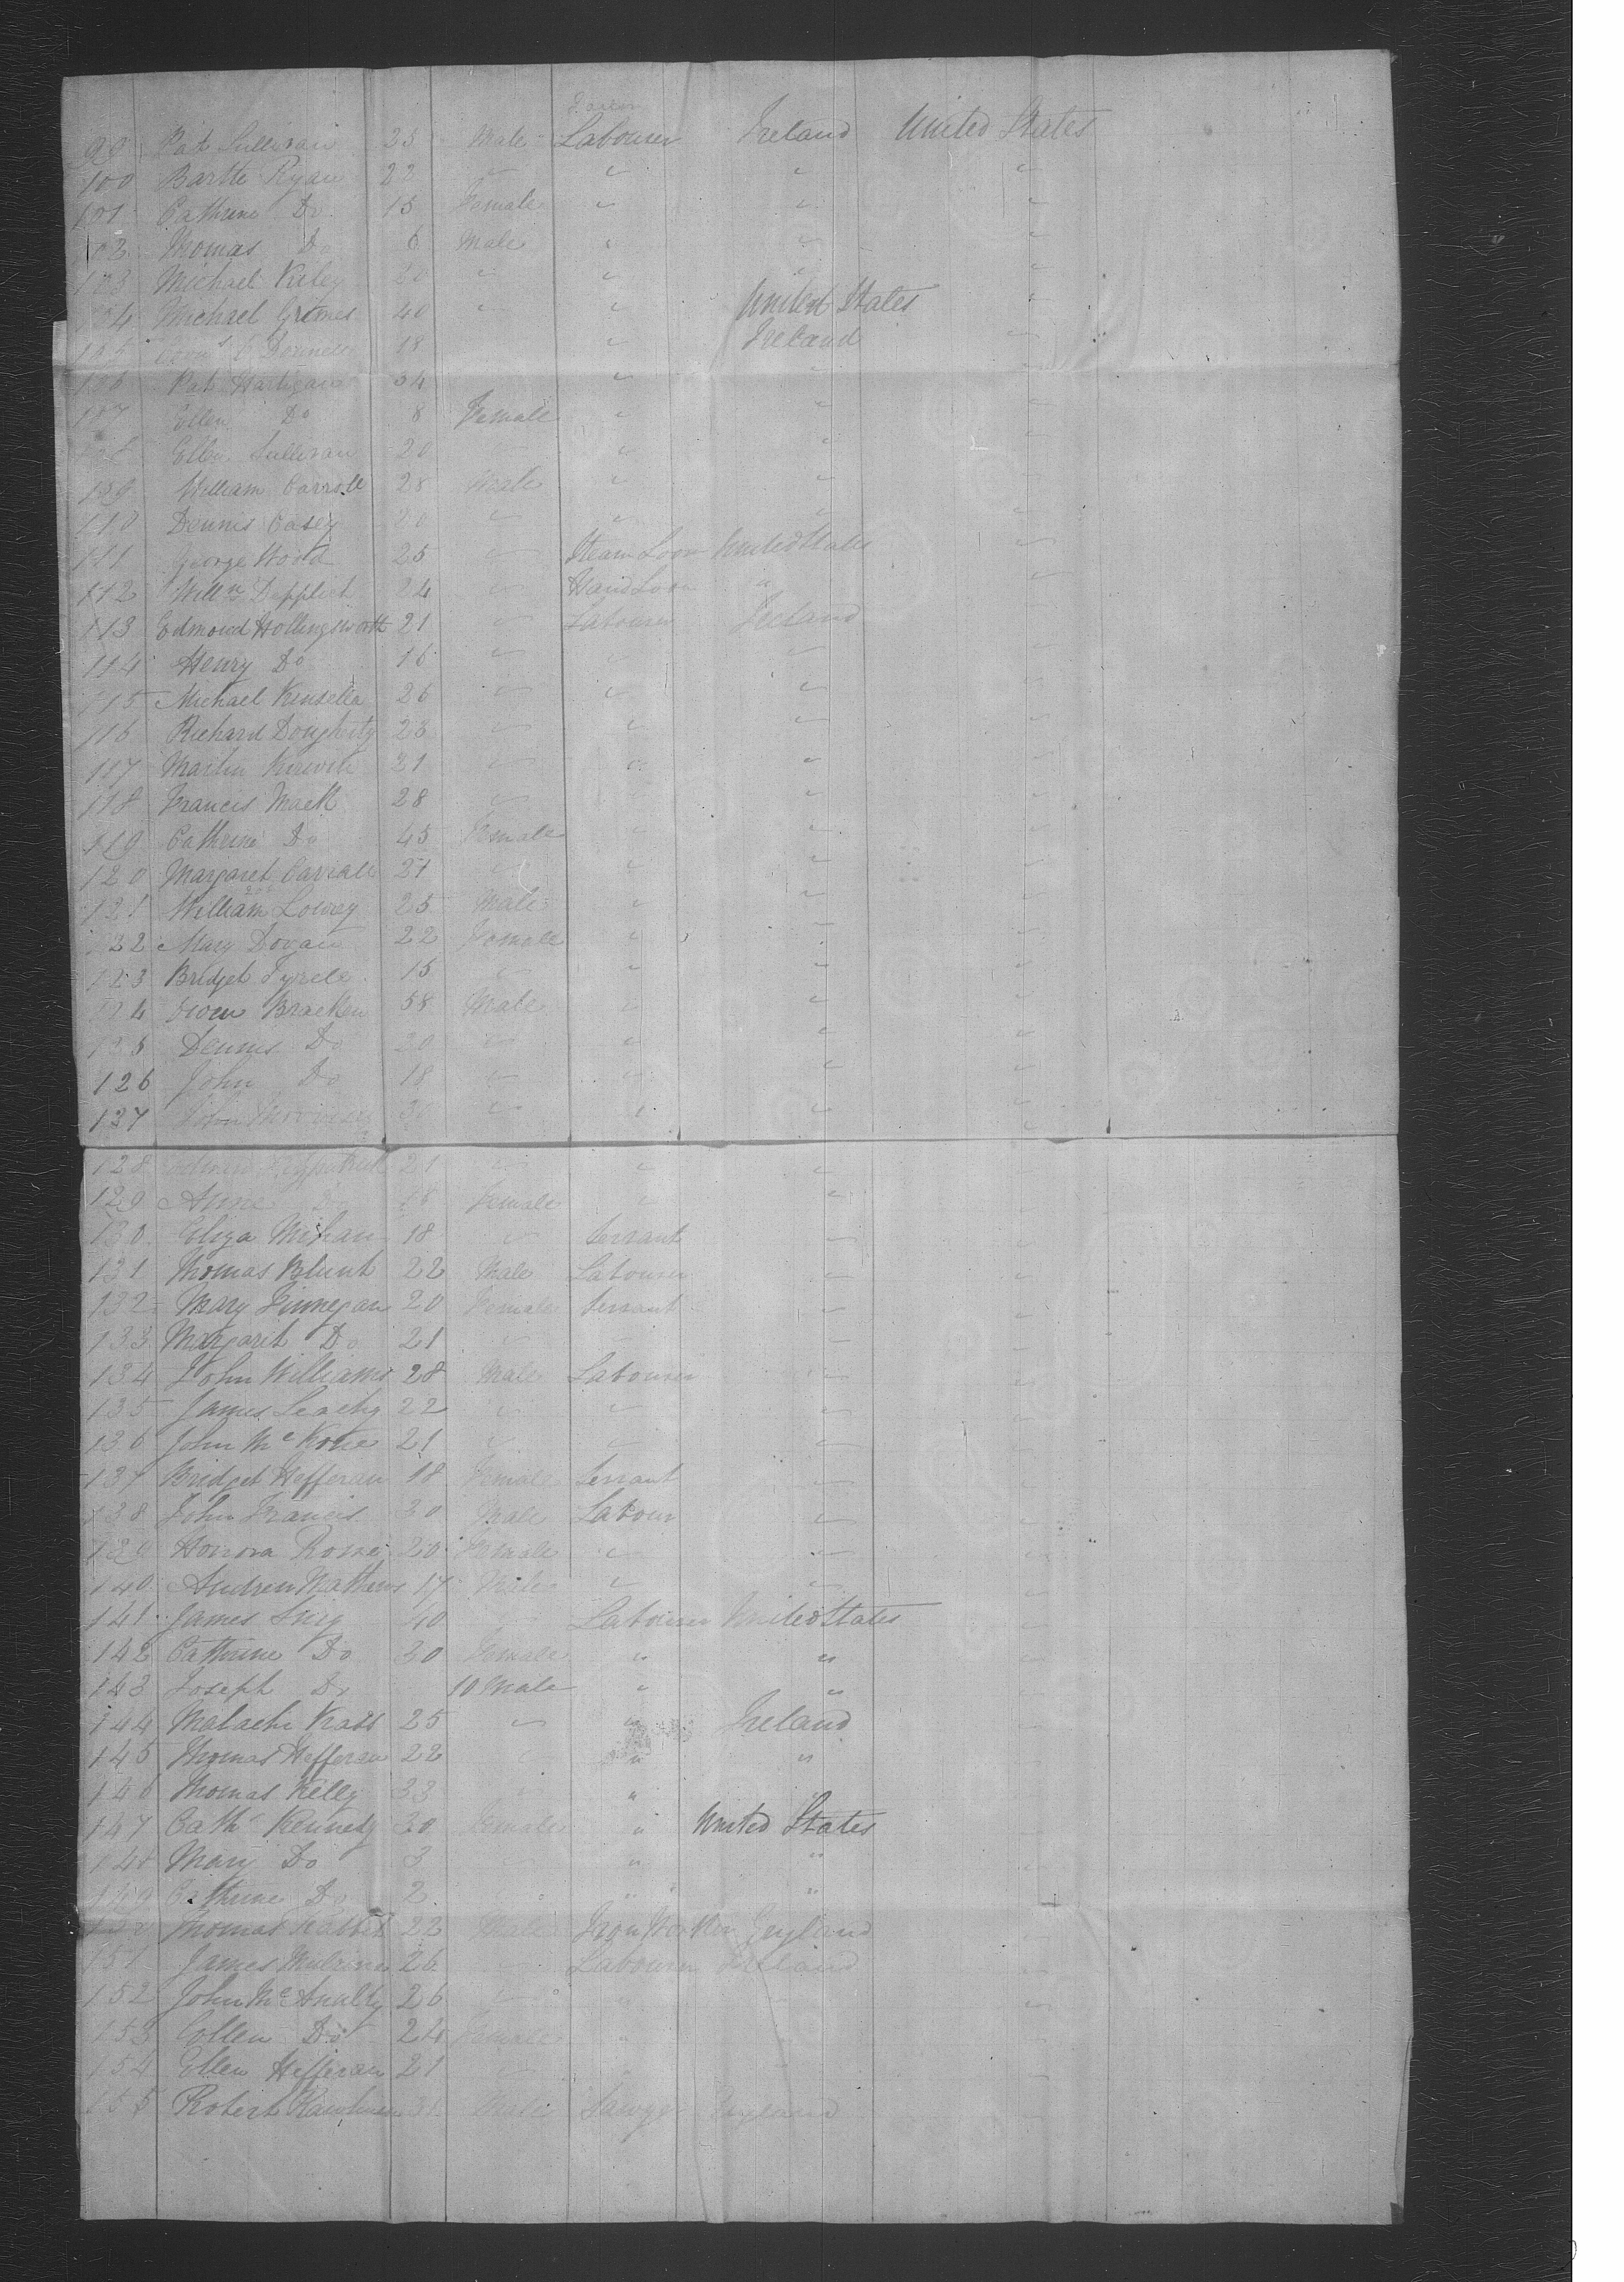 99 Pat Sullivan 25 Male Labourer Ireland United States
100 Bartte Ryan 22 " " " "
101 Cathrine Do 15 Female " " "
102 Thomas Do 6 Male " " "
103 Michael Kiley 20 " " " "
104 Michael Grimes 40 " " United States "
105 O Donnell 18 " Ireland "
106 Pat Hartigan 34 " " "
107 Ellen Do 8 Female " " "
108 Ellen Sullivan 20 " " " "
109 William Carroll 28 Male " " "
110 Dennis Casey 20 " " " "
111 George Wood 25 " Steam Loom United States "
112 Willm 24 " Hand Loom " "
113 Edmond Hollingsworth 21 " Labourer Ireland "
114 Henry Do 16 " " " "
115 Michael Kinsella 26 " " " "
116 Richard Dougherty 23 " " " "
117 Martin Kirwin 21 " " " "
118 Francis Mack 28 " " " "
119 Cathrine Do 45 Female " " "
120 Margaret Carroll 21 " " " "
121 William Lowry 25 Male " " "
122 Mary Dovan 22 Female " " "
123 Bridget Tyrele 15 " " " "
124 Owen Bracken 58 Male " " "
125 Dennis Do 20 " " " "
126 John Do 18 " " " "
127 John 30 " " " "
128 Fitzpatrick 21 " " " "
129 Anne Do 18 Female " " "
130 Eliza Mehan 18 " Servant " "
131 Thomas Blunt 22 Male Labourer " "
132 Mary Finnegan 20 Female Servant " "
133 Margaret Do 21 " " "
134 John Williams 28 Male Labourer " "
135 James Leachy 22 " " " "
136 John McKone 21 " " " "
137 Bridget Hefferan 18 Female Servant " "
138 John Francis 30 Male Labour " "
139 Honora 20 Female " " "
140 Andrew Mathews 17 Male " " "
141 James 40 " Labourer United States "
142 Cathrine Do 30 Female " " "
143 Joseph Do 10 Male " " "
144 Malachi 25 " " Ireland "
145 Thomas Hefferan 22 " " " "
146 Thomas Kelly 33 " " "
147 Cath Kennedy 30 Female " United States
148 Mary Do 3 " "
149 Cathrine Do 2 " " "
150 Thomas 22 Male Iron England
151 James 26 " Labourer Ireland "
152 John McAnulty 26 " "
153 Do 24 Female " "
154 Ellen Hefferan 21 " "
155 Robert Male England